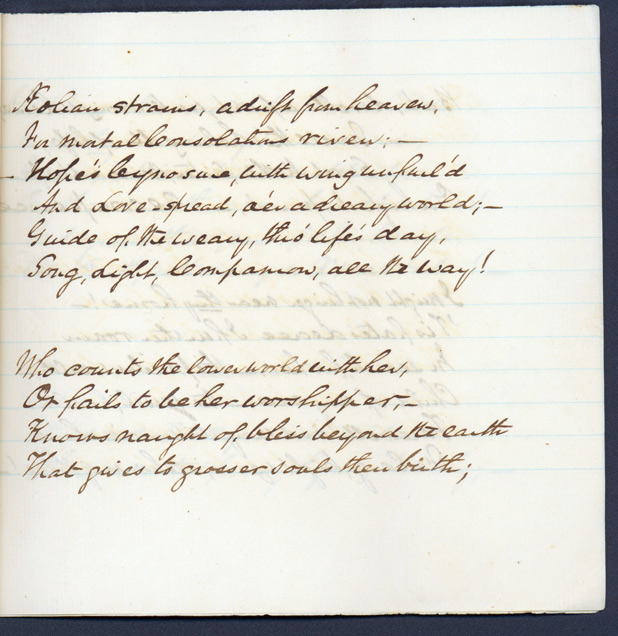 Æolian strains, adrift from heaven,
For mortal Consolations riven; —
— Hope's Cynosure, with wing unfurl'd
And Love spread, o'er a dreary world; —
Guide of the weary, thro' life's day,
Song, Light, Companion, all the way!
Who counts the lower world with her,
Or fails to be her worshipper, —
Knows naught of bliss beyond the earth
That gives to grosser souls their birth;